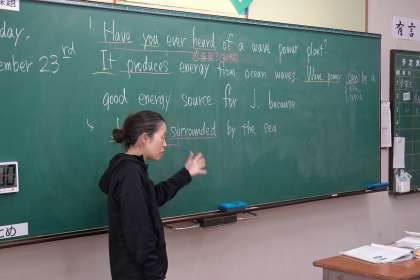 課題
day,
ember 23rd
Have you ever heard of a wave power plant?
It produces energy from ocean waves. Wave power can be a
good energy source for J. because
surrounded by the sea
とめ
有言
予定